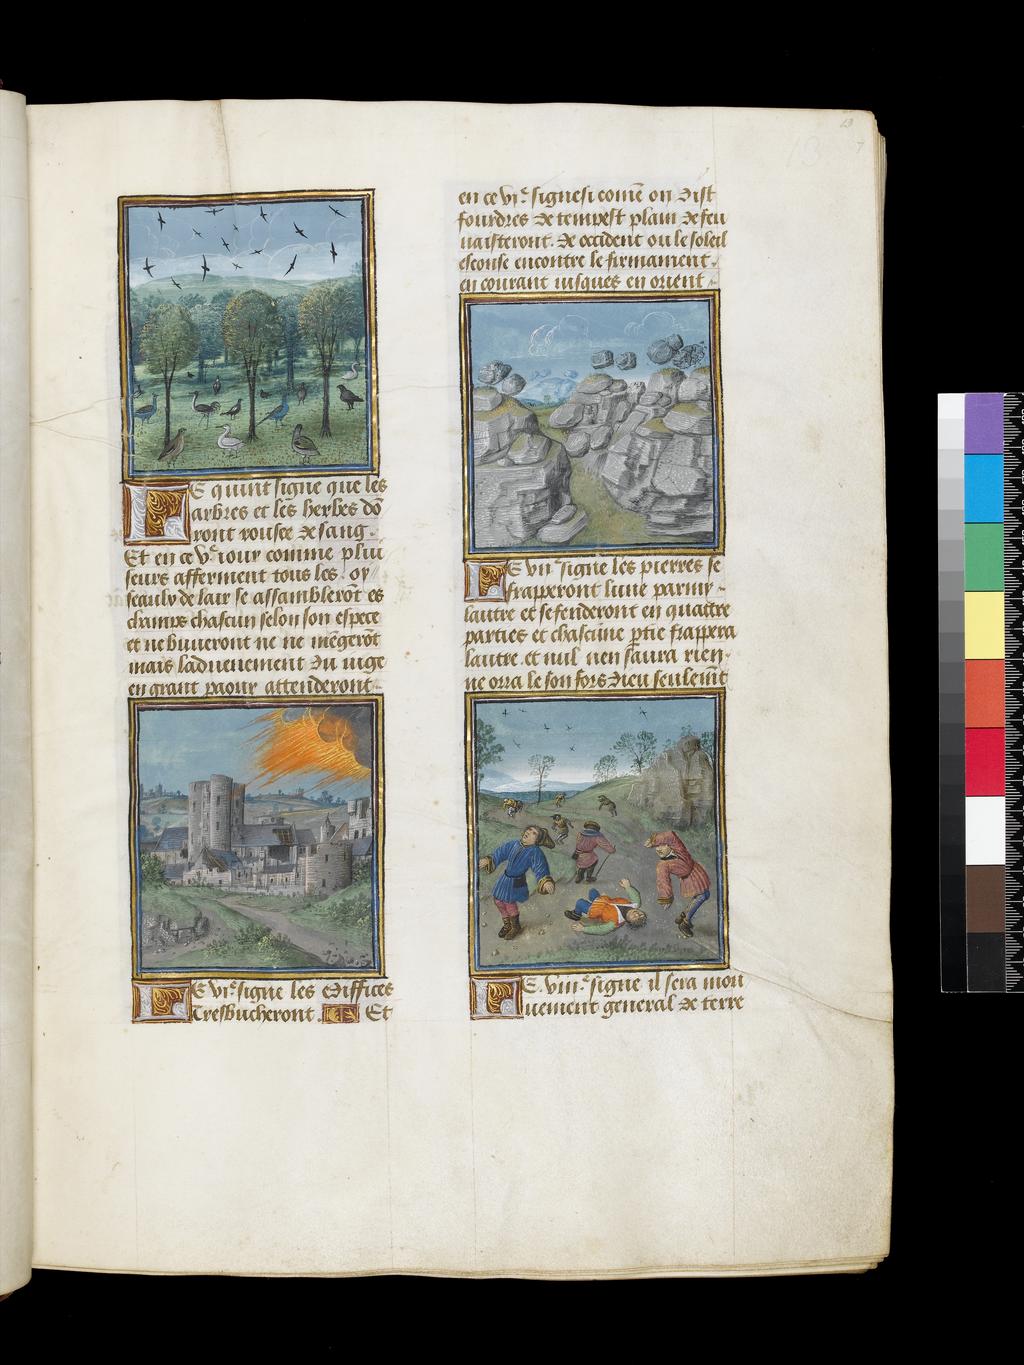 Le quint signe que les
arbres et les herbes dō
ront rousee de sang.
Et en ce vͤ iour comme plui
seurs afferment tous les oy
seaulx de lair se assamblerōt es
champs chascun selon son espece
et ne buueront ne ne mēgerōt
mais laduenement du iuge
en grant paour attenderont
Le viͤ signe les ediffices
tresbucheront. Et
en ce viͤ signe si comē on dist
fourdres de tempest plain de feu
naisteront. de occident ou le soleil
esconse encontre le firmament.
en courant iusques en orient
Le viiͤ signe les pierres se
frapperont lune parmy
lautre et se fenderont en quattre
parties et chascune ꝑtie frappera
lautre. et nul nen saura rien
ne orra le son fors dieu seulemēt
Le. viiiͤ signe il sera mou
uement general de terre
13